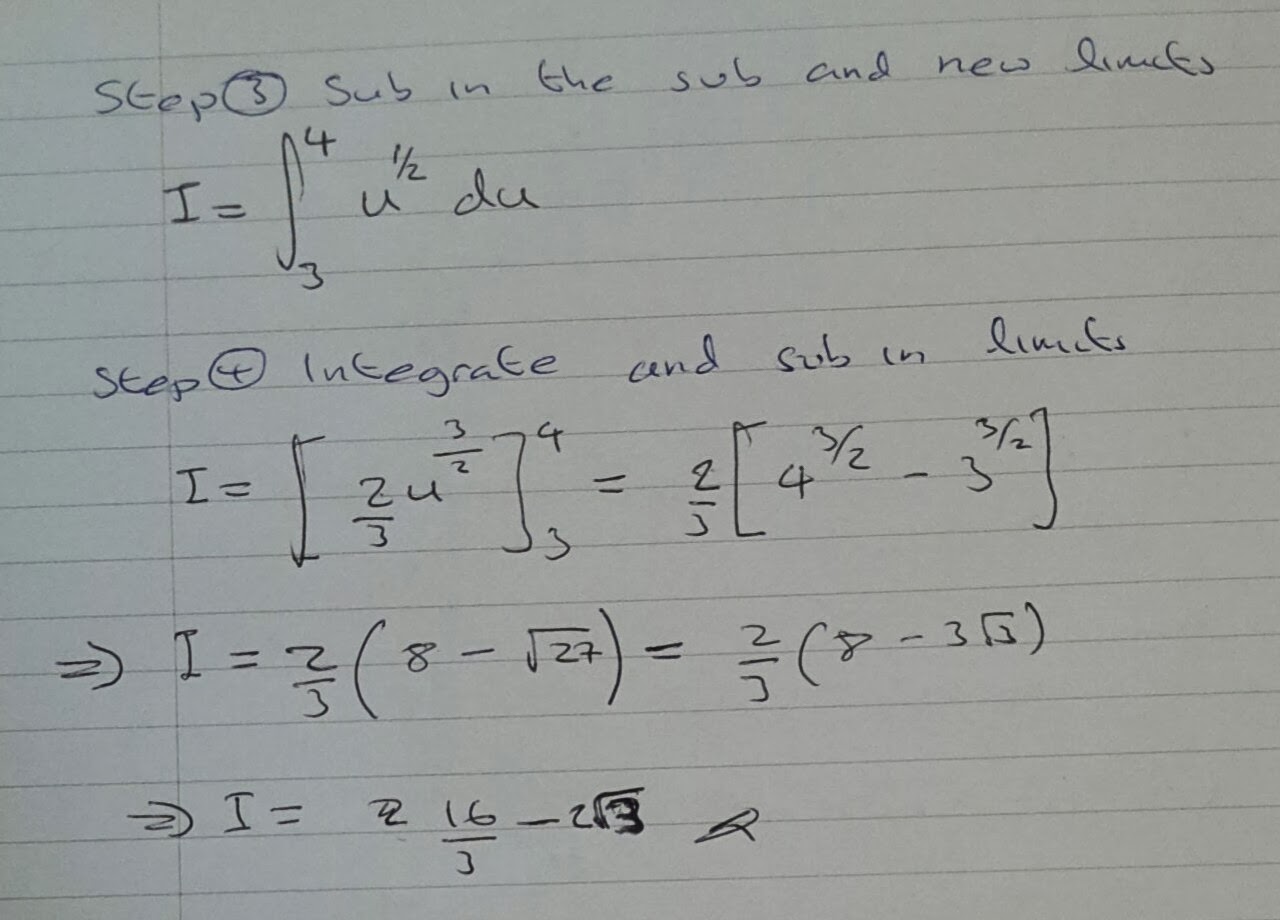 Step ③ Sub in the sub and new limits
I = ∫₃⁴ u^{1/2} du
Step ④ Integrate and sub in limits
I = [ 2/3 u^{3/2} ]₃⁴ = 2/3 [ 4^{3/2} - 3^{3/2} ]
⇒ I = 2/3 ( 8 - √27 ) = 2/3 ( 8 - 3√3 )
⇒ I = 2 16/3 - 2√3